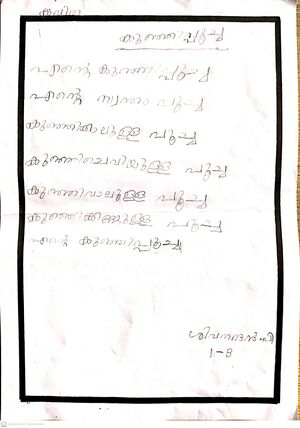 കവിത
കുഞ്ഞിപ്പൂച്ച
എന്റെ കുഞ്ഞിപ്പൂച്ച
എന്റെ സ്വന്തം പൂച്ച
കുഞ്ഞിക്കാലുള്ള പൂച്ച
കുഞ്ഞിചെവിയുള്ള പൂച്ച
കുഞ്ഞിവാലുള്ള പൂച്ച
കുഞ്ഞിക്കണ്ണുള്ള പൂച്ച
എന്റെ കുഞ്ഞിപ്പൂച്ച
1-B